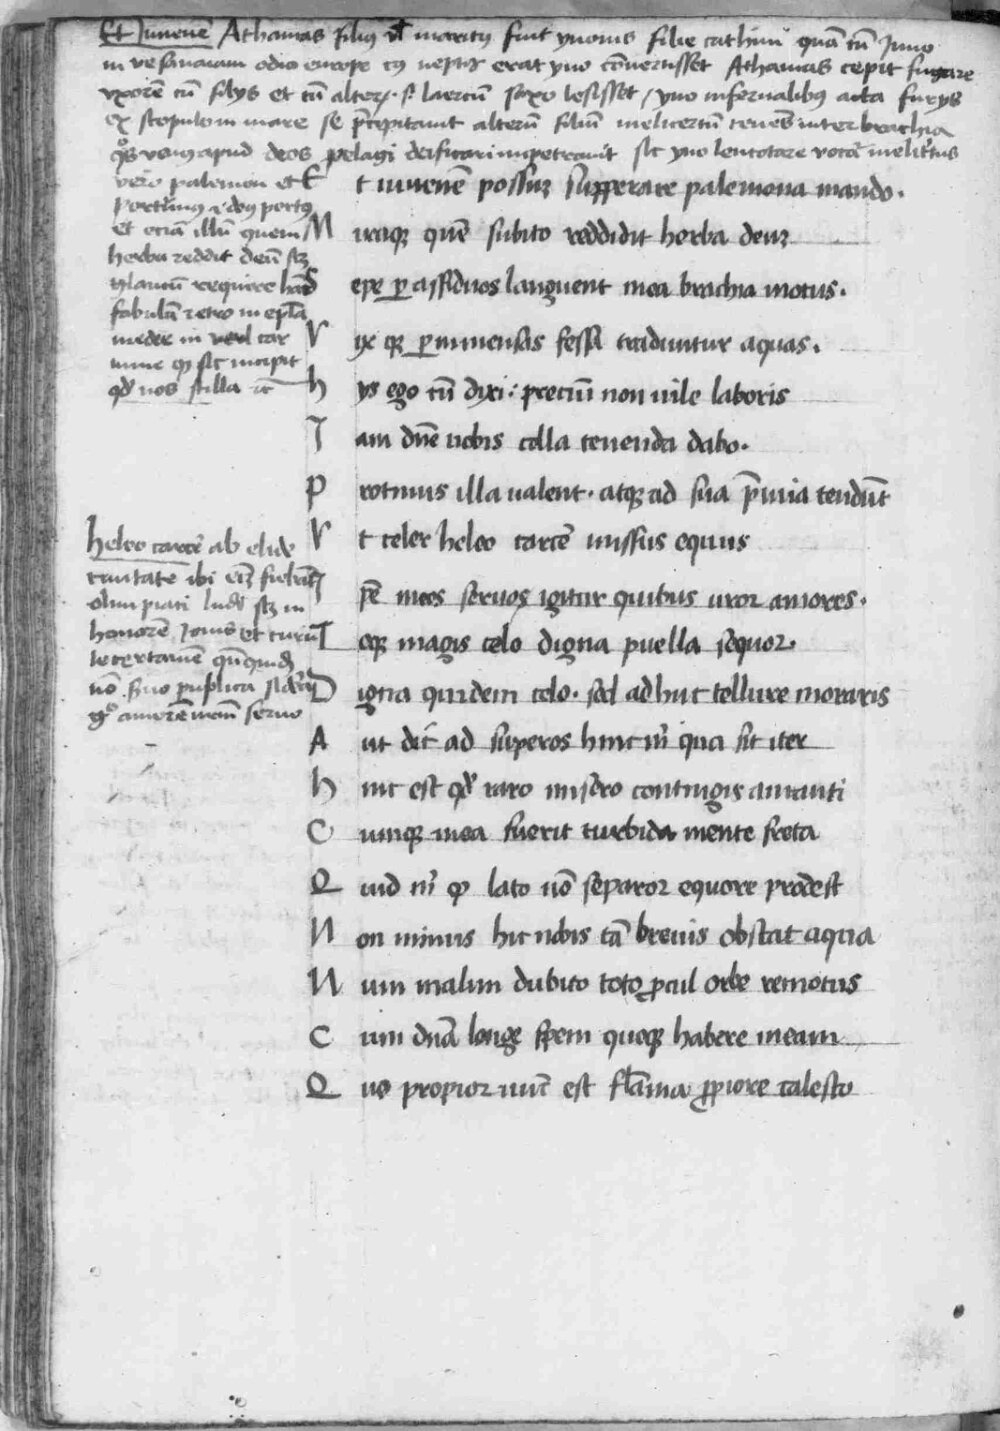 Et Juuenē Athamas filiꝯ vł maritꝯ fuit ynonis filie cathmi quā cū Juno
in vesanaiam odio europe cꝯ neptis erat yno cōuertisset Athamas cepit fugare
vxorē cū filijs et cū alter laercū saxo lesisset / yno infernalibꝯ acta furijs
ex scopulo in mare se p̄cipitauit alterū filiū melicertū tenēs inter brachia
qͦs venꝯ apud deos pelagi deificari impetrauit sic yno leucotoe vocā melicertus
vero palemon et
Portunꝯ deꝯ portꝯ
et eciā illū quem
herba reddit deū sꝫ
glaucū require hāc
fabulā retro in epłā
medee in carmine qd sic incipit
qd nos stilla ꝛc̄
Et iuuenē possum supperare palemona nando.
Miraqꝫ quē subito reddidit herba deuꝫ
Sepe ꝑ assiduos languent mea brachia motus.
Vix qꝫ ꝑ inmensas fessa trahuntur aquas.
hijs ego cū dixi: preciū non uile laboris
Iam dn̄e uobis colla tenenda dabo.
Protinus illa ualent. atqꝫ ad sua p̄mia tendūt
Vt celer heleo carcē missus equus
heleo carcē ab elide
ciuitate ibi eī fiebāt
olimpiaci ludi sꝫ in
honorē Jouis et curule certamē
uō suo publica
gͦ amorē meū seruo
Ipē meos seruos igitur quibus uror amores.
Teqꝫ magis celo digna puella sequor.
Digna quidem celo. sed adhuc tellure moraris
Aut dic ad superos hinc m̄ qua sit iter
hinc est qd raro misero contingis amanti
Cumqꝫ mea fuerit turbida mente freta
Quid m̄ qd lato nō separor equore prodest
Non minus hic nobis tā breuis obstat aqua
Num malim dubito toto ꝓcul orbe remotus
Cum dn̄a longe spem quoqꝫ habere meam
Quo propior nūc est flāma ꝓpiore calesco